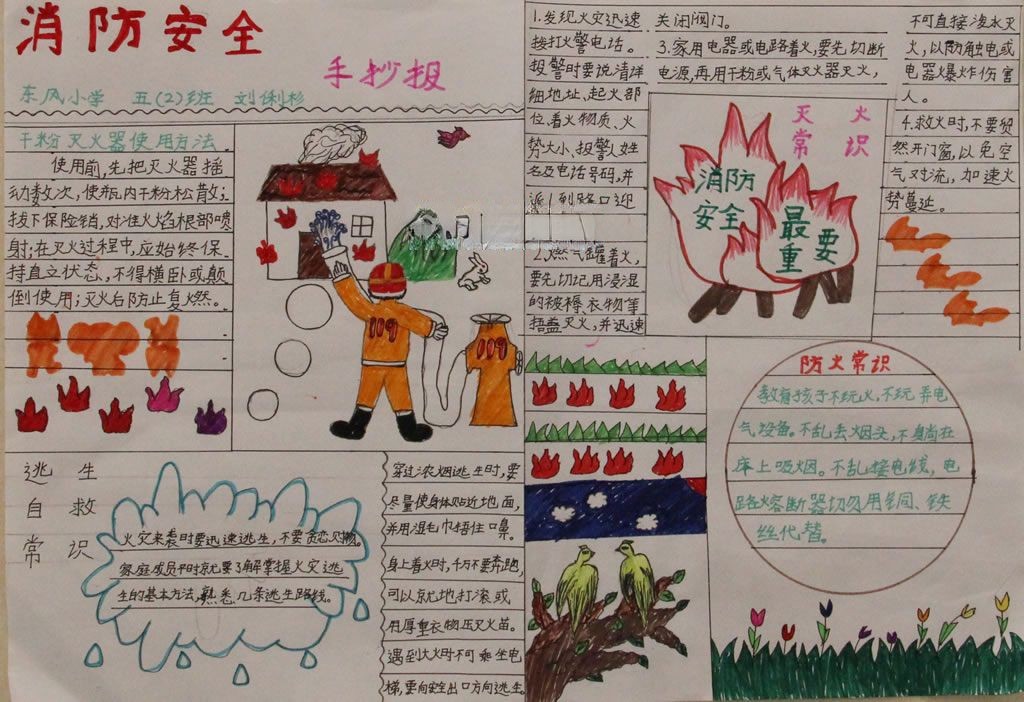 消防安全
手抄报
东风小学 五(2)班 刘俐杉
干粉灭火器使用方法
使用前,先把灭火器摇
动数次,使瓶内干粉松散;
拔下保险销,对准火焰根部喷
射;在灭火过程中,应始终保
持直立状态,不得横卧或颠
倒使用;灭火后防止复燃。
119
119
逃生
自救
常识
火灾来袭时要迅速逃生,不要贪恋财物。
家庭成员平时就要了解掌握火灾逃
生的基本方法,熟悉几条逃生路线。
穿过浓烟逃生时,要
尽量使身体贴近地面,
并用湿毛巾捂住口鼻。
身上着火时,千万不要奔跑,
可以就地打滚或
用厚重衣物压灭火苗。
遇到大火时不可乘坐电
梯,要向安全出口方向逃生。
1.发现火灾迅速
拨打火警电话。
报警时要说清详
细地址、起火部
位、着火物质、火
势大小、报警人姓
名及电话号码,并
派人到路口迎
2.燃气罐着火,
要先切记用浸湿
的被褥、衣物等
捂盖灭火,并迅速
关闭阀门。
3.家用电器或电路着火,要先切断
电源,再用干粉或气体灭火器灭火,
不可直接泼水灭
火,以防触电或
电器爆炸伤害
人。
4.救火时,不要贸
然开门窗,以免空
气对流,加速火
势蔓延。
灭火
常识
消防
安全
最
重要
防火常识
教育孩子不玩火,不玩弄电
气设备。不乱丢烟头,不躺在
床上吸烟。不乱接电线,电
路火熔断器切勿用铜、铁
丝代替。